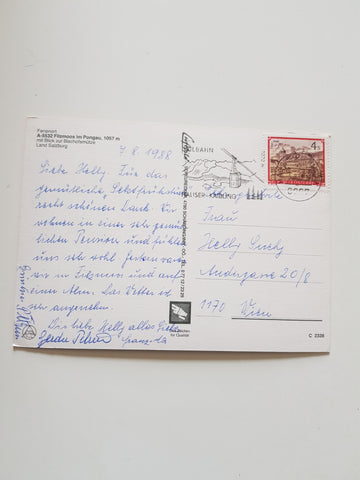 Ferienort
A-5532 Filzmoos im Pongau, 1057 m
mit Blick zur Bischofsmütze
Land Salzburg
7. 8. 1988
Liebe Helly. Für das
gemütliche Sektfrühstück
recht schönen Dank. Wir
wohnen in einer sehr gemüt
lichen Pension und fühlen
uns sehr wohl. Gestern waren
wir in Filzmoos und auf
einer Alm. Das Wetter ist
sehr angenehm.
Dir liebe Helly alles Liebe
SEILBAHN
HAUSER-KAIBLING
4 S
Frau
Helly
Andergasse 20/8
1170 Wien
Das Zeichen
für Qualität
C 2328